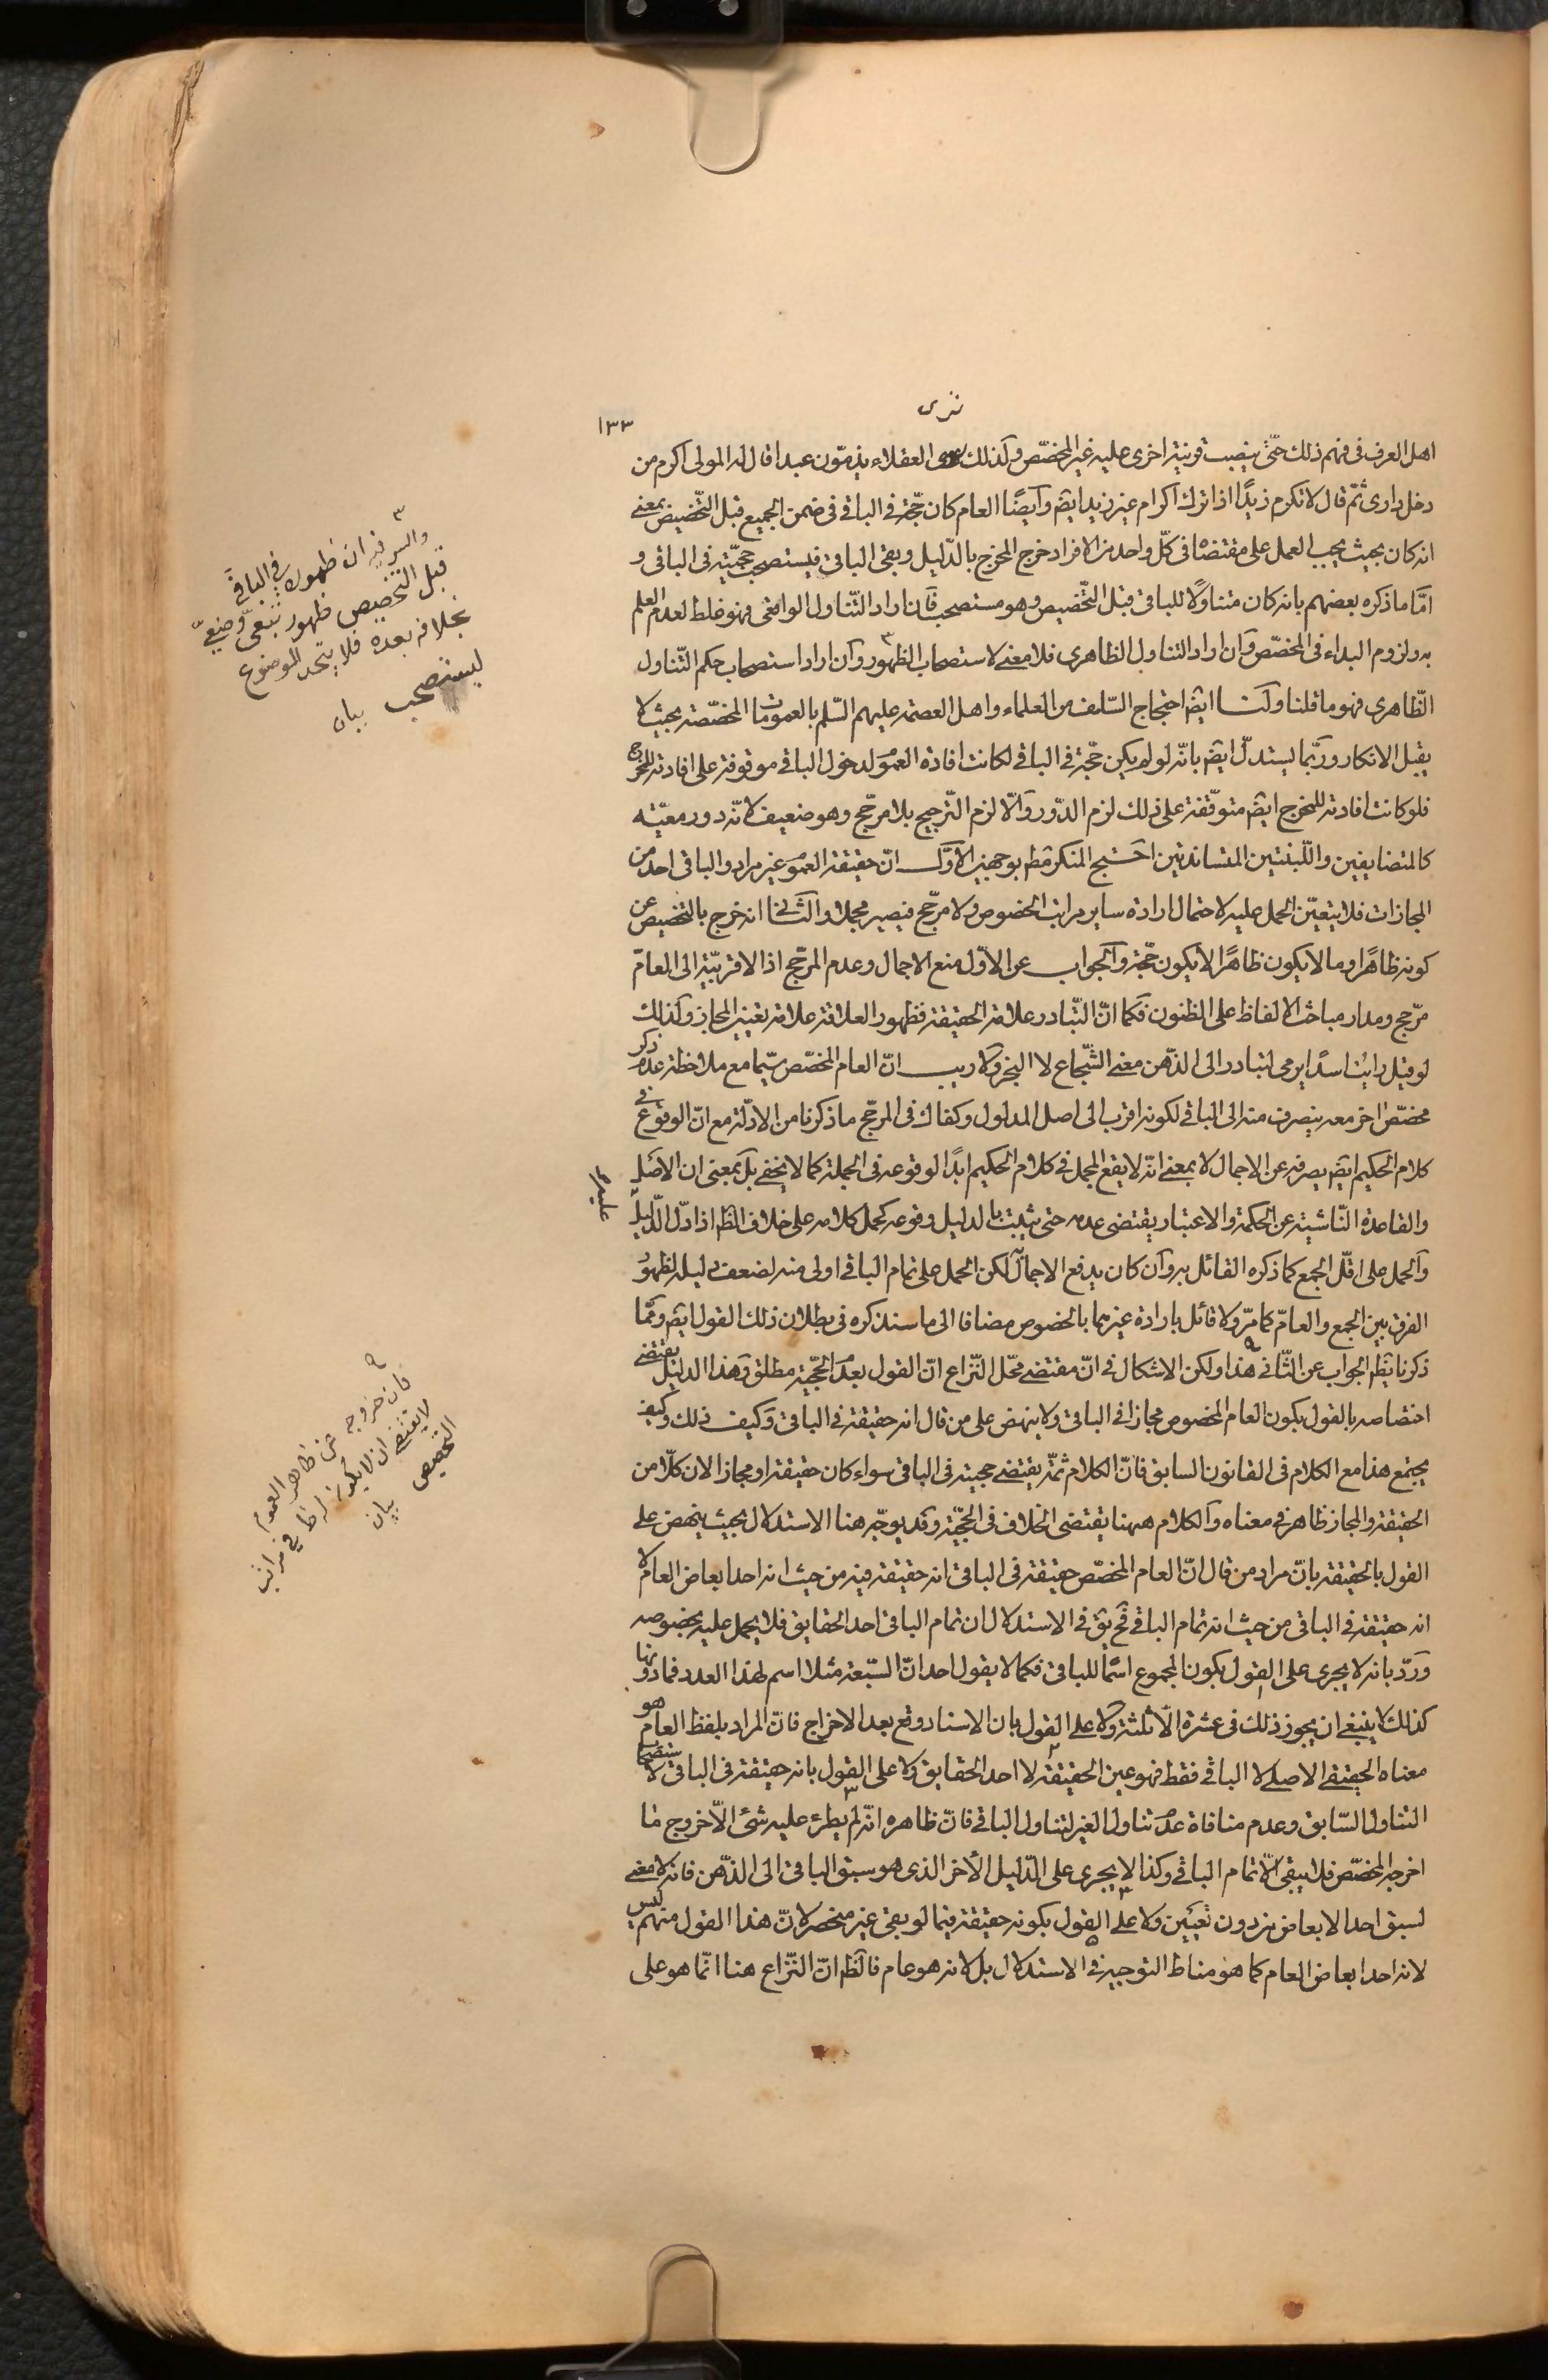 نری
١٣٣
اهل العرف فی فهم ذلك حتّی ینصب قرینة اخری علیه غیر المخصّص وکذلك العقلاء یذمّون عبدا قال له المولی اکرم من
دخل داری ثمّ قال لا تکرم زیدًا اذا ترك اکرام غیر زید ایضً وایضًا العام کان حجّة فی الباقی فی ضمن الجمیع قبل التّخصیص بمعنی
انه کان بحیث یجب العمل علی مقتضاه فی کلّ واحد من الافراد خرج المخرج بالدّلیل وبقی الباقی فیستصحب حجیّته فی الباقی و
امّا ما ذکره بعضهم بانه کان متناولًا للباقی قبل التّخصیص وهو مستصحب فان اراد التّناول الواقعی فهو غلط لعدم العلم
به ولزوم البداء فی المخصّص وان اراد التناول الظاهری فلا معنی لاستصحاب الظهور ٣ وان اراد استصحاب حکم التّناول
الظّاهری فهو ما قلنا ولنا ایضً احتجاج السّلف من العلماء واهل العصمة علیهم السّلم بالعمومات المخصّصة بحیث لا
یقبل الانکار وربّما یستدلّ ایضً بانّه لو لم یکن حجّة فی الباقی لکانت افادة العمو لدخول الباقی موقوفة علی افادته للمخرج
فلو کانت افادته للمخرج ایضً متوقّفة علی ذلك لزم الدّور والّا لزم التّرجیح بلا مرجّح وهو ضعیف لانّه دور معیّة
کالمتضایفین واللّبنتین المتساندتین احتج المنکر مط بوجهین الاوّل انّ حقیقة العمو غیر مراد والباقی احد من
المجازات فلا یتعیّن الحمل علیه لاحتمال ارادة سایر مراتب الخصوص ولا مرجّح فیصیر مجملا والثانی انه خرج بالتخصیص عن
کونه ظاهرًا وما لا یکون ظاهرًا لا یکون حجّة والجواب عن الاوّل منع الاجمال وعدم المرجّح اذ الاقربیّة الی العامّ
مرجّح ومدار مباحث الالفاظ علی الظنون فکما انّ التّبادر علامة الحقیقة فظهور العلاقة علامة تعیین المجاز وکذلك
لو قیل رایت اسدًا یرمی لتبادر الی الذّهن معنی الشّجاع لا البخر ولا ریب انّ العام المخصّص سیّما مع ملاحظة عدم ذکر
مخصّص اخر معه ینصرف منه الی الباقی لکونه اقرب الی اصل المدلول وکفاك فی المرجّح ما ذکرنا من الادلّة مع انّ الوقوع فی
کلام الحکیم ایضً یصرفه عن الاجمال لا بمعنی انّه لا یقع المجمل فی کلام الحکیم ابدًا لوقوعه فی الجملة کما لا یخفی بل بمعنی ان الاصل
والقاعدة النّاشیة عن الحکمة والاعتبار یقتضی عدمه حتی یثبت بالدلیل وقوعه کحمل کلامه علی خلاف الظ اذا دلّ الدّلیل
علیه
والحمل علی اقلّ الجمع کما ذکره القائل به وان کان یدفع الاجمال لکن الحمل علی تمام الباقی اولی منه لضعف دلیله لظهو
الفرق بین الجمع والعامّ کما مرّ ولا قائل بارادة غیرهما بالخصوص مضافا الی ما سنذکره فی بطلان ذلك القول ایضً وممّا
ذکرنا یظهر الجواب عن الثّانی ٩ هذا ولکن الاشکال فی انّ مقتضی محّل النّزاع انّ القول بعدم الحجّیة مطلق وهذا الدلیل یقتضی
اختصاصه بالقول بکون العام المخصوص مجازا فی الباقی ولا ینهض علی من قال انه حقیقة فی الباقی وکیف ذلك وکیف
یجتمع هذا مع الکلام فی القانون السابق فانّ الکلام ثمّة یقتضی حجیته فی الباقی سواء کان حقیقة او مجازا لان کلّا من
الحقیقة والمجاز ظاهر فی معناه والکلام ههنا یقتضی الخلاف فی الحجّیة وقد یوجّه هنا الاستدلال بحیث ینهض علی
القول بالحقیقة بانّ مراد من قال انّ العام المخصّص حقیقة فی الباقی انه حقیقة فیه من حیث انه احد ابعاض العام لا
انه حقیقة فی الباقی من حیث انه تمام الباقی فح یق فی الاستدلال ان تمام الباقی احد الحقایق فلا یحمل علیه بخصوصه
وردّ بانه لا یجری علی القول بکون المجموع اسمًا للباقی فکما لا یقول احد انّ السّبعة مثلا اسم لهذا العدد فما دونها
کذلك لا ینبغی ان یجوز ذلك فی عشرة الّا ثلثة ولا علی القول بان الاسناد وقع بعد الاخراج فانّ المراد بلفظ العام هو
معناه الحقیقی الاصلی لا الباقی فقط فهو عین الحقیقة لا احد الحقایق ولا علی القول بانه حقیقة فی الباقی لاستصحاب
التناول السّابق وعدم منافاة عدم تناول الغیر لتناول الباقی فانّ ظاهره انّه لم یطرء علیه شئ الّا خروج ما
اخرجه المخصّص فلا یبقی الّا تمام الباقی وکذا لا یجری علی الدّلیل الآخر الذی هو سبق الباقی الی الذّهن فانه لا معنی
لسبق احد الابعاض من دون تعیین ولا علی القول بکونه حقیقة فیما لو بقی غیر منحصر لانّ هذا القول منهم لیس
لانه احد ابعاض العام کما هو مناط التوجیه فی الاستدلال بل لانه هو عام فالظ انّ النّزاع هنا انّما هو علی
٣
والسر فیه ان ظهوره فی الباقی
قبل التخصیص ظهور تبعی وضعیّ
بخلافه بعده فلا یتحد الموضوع
لیستصحب بیان
٩
فان خروجه عن ظاهر العموم
لا یقتضی ان لا یکون له ظ فی مراتب
التخصیص بیان